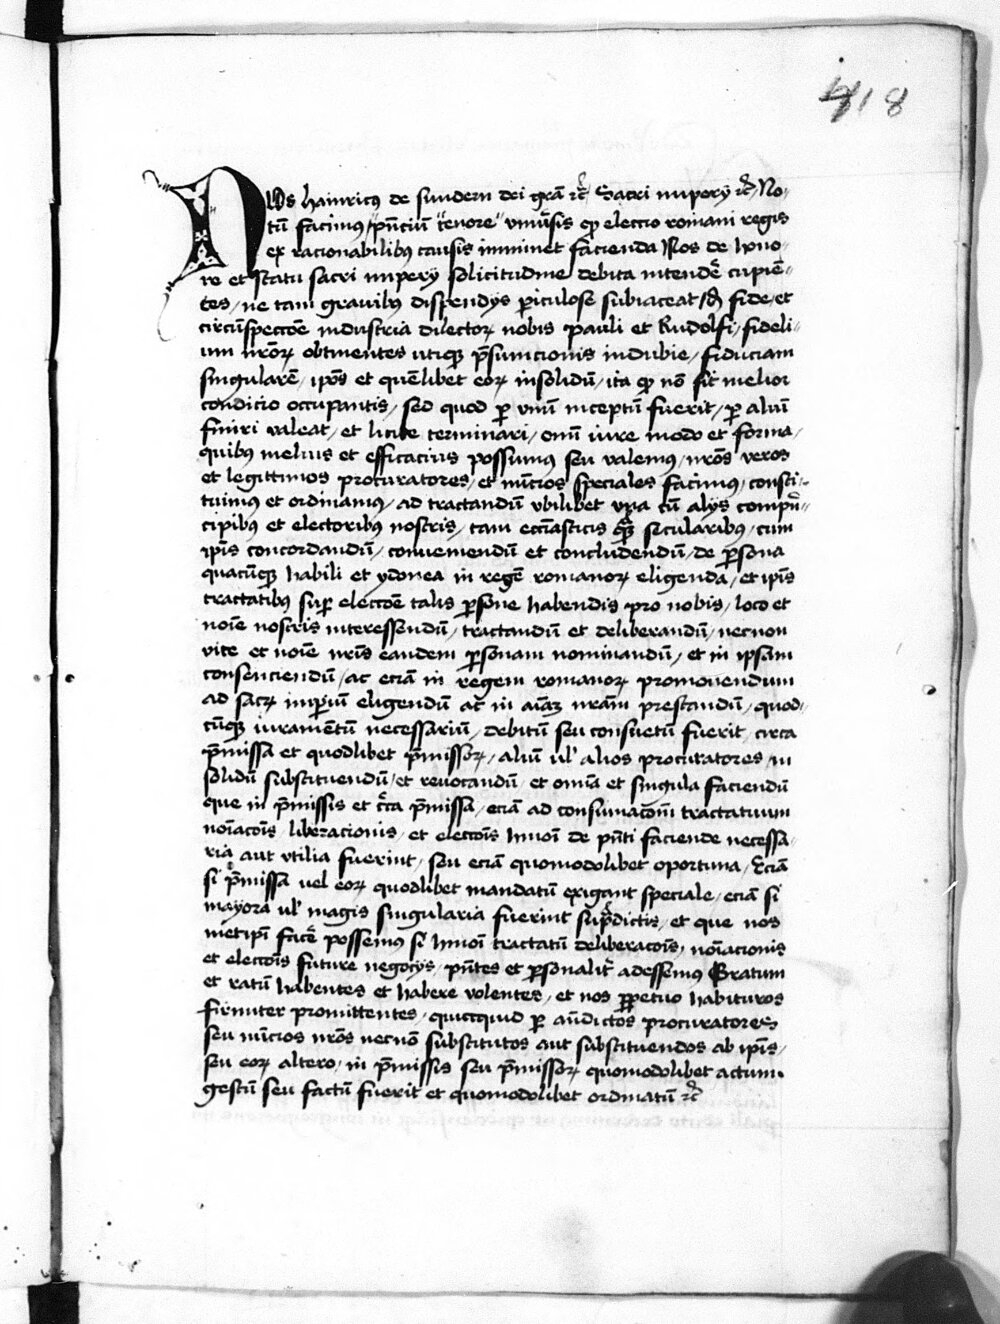 418
Nos hainricus de sundern dei grā ꝛc̄ Sacri imperij ꝛc̄ No-
tū facimus pñciū tenore vniūsis ꝙ eleccio romani regis
ex racionabilibꝰ causis imminet facienda Nos de hono-
re et statu sacri imperij solicitudine debita intendē cupiē-
tes / ne tam grauibꝰ dispendijs ꝑiculose subiaceat / fide et
circūspeccōe industria dilectoꝝ nobis pauli et Rudolfi / fideli-
um nr̄oꝝ obtinentes vtiqꝫ p̄sumcionis indubie / fiduciam
singularē / ip̄os et quēlibet eoꝝ insolidū / ita ꝙ nō sit melior
condicio occupantis / sed quod ꝑ vnū inceptū fuerit / ꝑ aliū
finiri valeat / et licite terminari / omī iure modo et forma /
quibꝰ melius et efficacius possumus seu valemus / nr̄os veros
et legittimos procuratores / et nūcios speciales facimus / consti-
tuimus et ordinamus / ad tractandū vbilibet vna cū alijs comp̄n-
cipibꝰ et electoribꝰ nostris / tam eccīasticis qꝫ secularibꝰ / cum
ip̄is concordandū / conueniendū et concludendū / de ꝑsona
quacūqꝫ habili et ydonea in regē romanoꝝ eligenda / et ip̄is
tractatibꝰ suꝑ eleccōe talis ꝑsone habendis pro nobis / loco et
noīe nostris interessendū / tractandū et deliberandū / necnon
vice et noīe nr̄is eandem ꝑsonam nominandū / et in ipsam
consenciendū / ac eciā in regem romanoꝝ promouendum
ad sacꝝ imꝑiū eligendū ac in aīaꝫ nrām prestandū / quod-
cūqꝫ iuramentū necessariū / debitū seu consuetū fuerit / circa
p̄missa et quodlibet p̄missoꝝ / aliū ul' alios procuratores / in
solidū substituendū / et reuocandū / et omīa et singula faciendū
que in p̄missis et cr̄ca p̄missa / eciā ad consumacōnī tractatuum
noīacōis / liberacionis / et eleccōis hmōi de pn̄ti faciende necessa-
ria aut vtilia fuerint / seu eciā quomodolibet oportuna / Eciā
si p̄missa uel eoꝝ quodlibet mandatū exigant speciale / eciā si
mayora ul' magis singularia fuerint sup̄dictis / et que nos
metip̄i facē possemus si hmōi tractatū deliberacōis / noīacionis
et eleccōis future negocijs / pn̄tes et ꝑsonalit' adessemus Gratum
et ratū habentes et habere volentes / et nos ꝑpetuo habituros
firmiter promittentes / quicquid ꝑ an̄dictos procuratores
seu nūcios nr̄os necnō substitutos aut substituendos ab ip̄is /
seu eoꝝ altero / in p̄missis seu p̄missoꝝ quomodolibet actum
gestū seu factū fuerit et quomodolibet ordinatū ꝛc̄